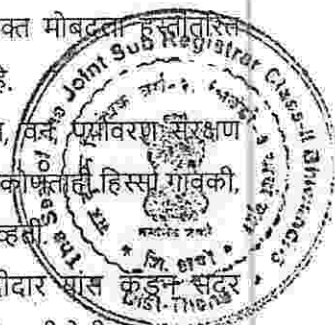 क्त मोबदला हस्तांतरित
है.
, वने, पर्यावरण संरक्षण
कोणताही हिस्सा गावकी,
व्हती.
दीदार यांस कडून सदर
The Seal of The Joint Sub Registrar Class-II Bhiwandi-3
सत्यमेव जयते
* जि. ठाणे *
Dist-Thane